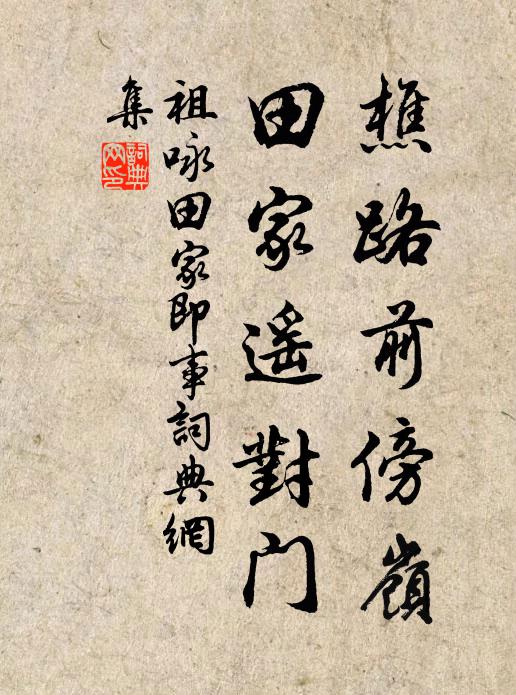 樵路前傍嶺
田家遥對门
祖咏田家即事詞典網
集
詞典
网印